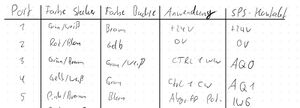 Port Farbe Stecker Farbe Buchse Anwendung SPS-Kontakt
1 Grün/weiß Braun +24V +24V
2 Rot/Blau Gelb 0V 0V
3 Grün/Braun Grün/weiß CTRL 1 CW AQ0
4 Gelb/weiß Grün Ctrl 1 CW AQ1
5 Pink/Braun Blau Abgriff Pot. IW6